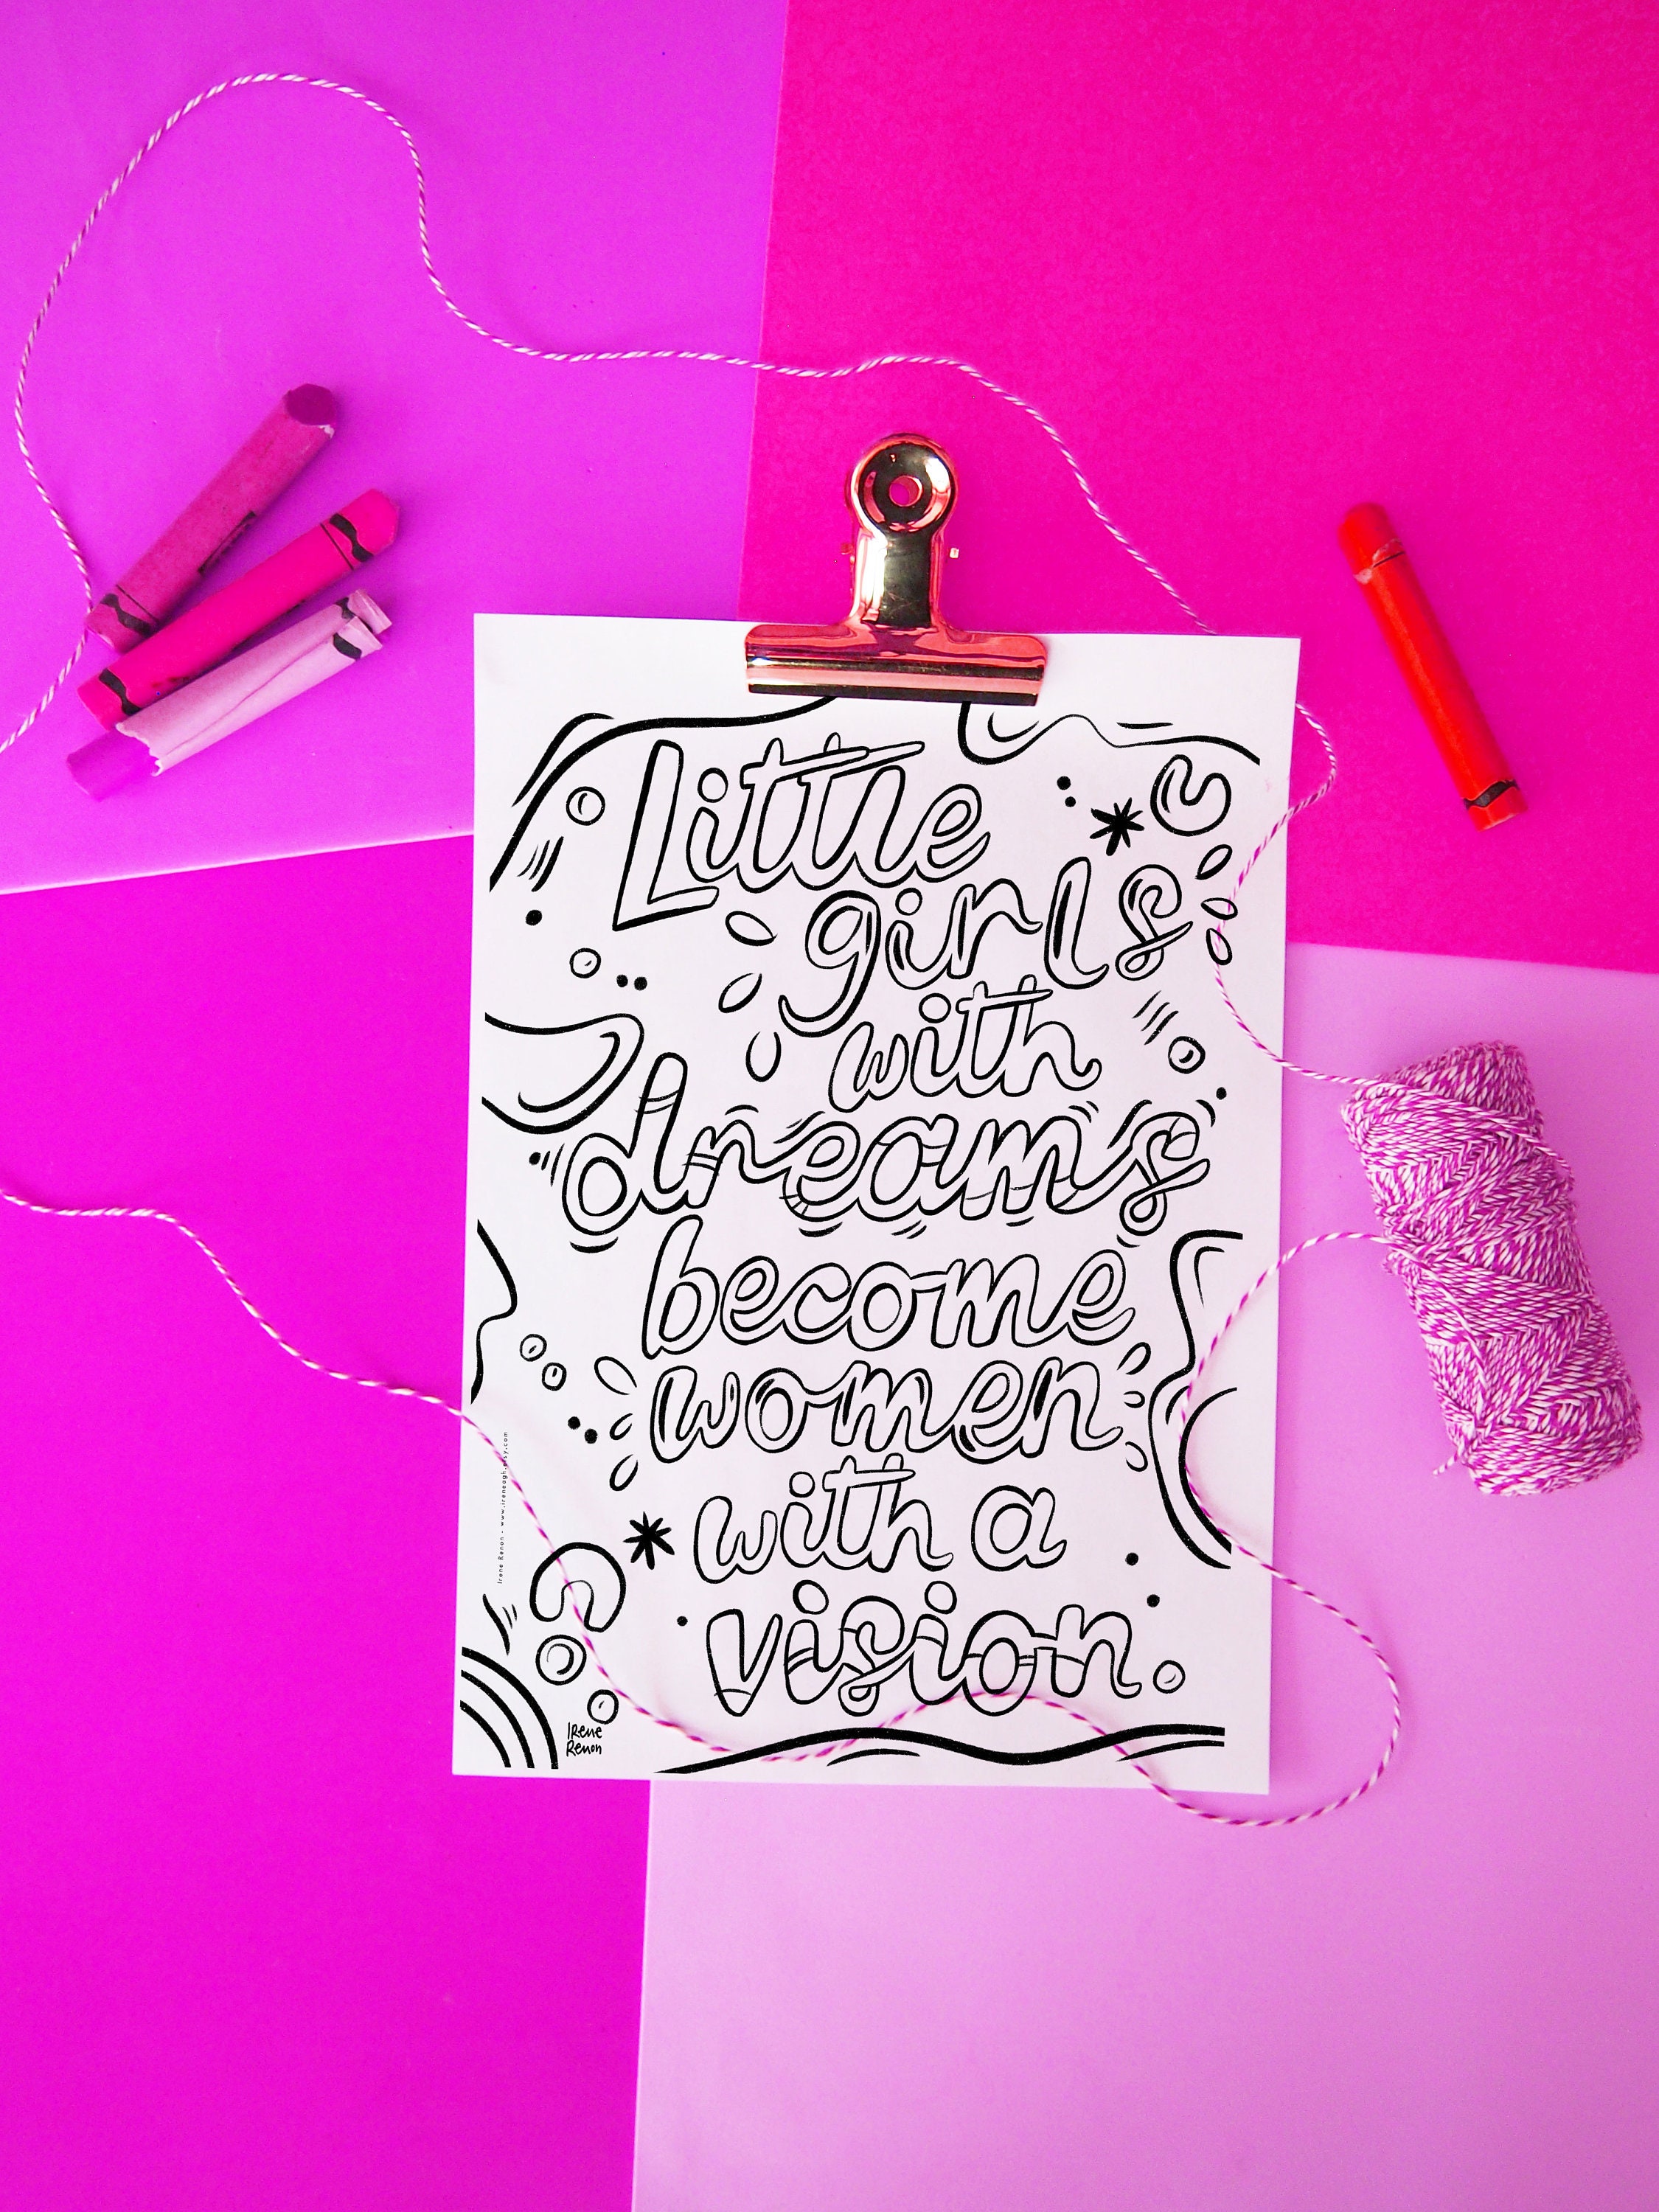 Little
girls
with
dreams
become
women
with a
vision.
Irene Renon - www.ireneagh.etsy.com
Irene
Renon